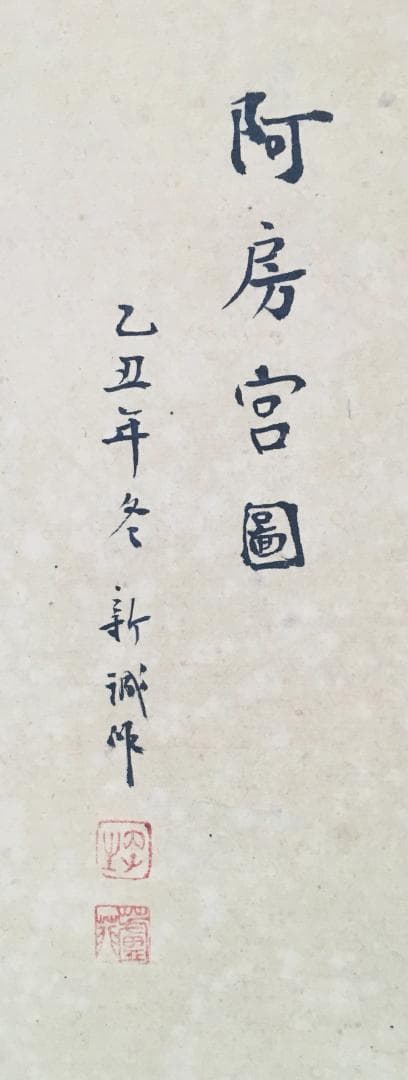 阿房宮圖
乙丑年冬 新誠作